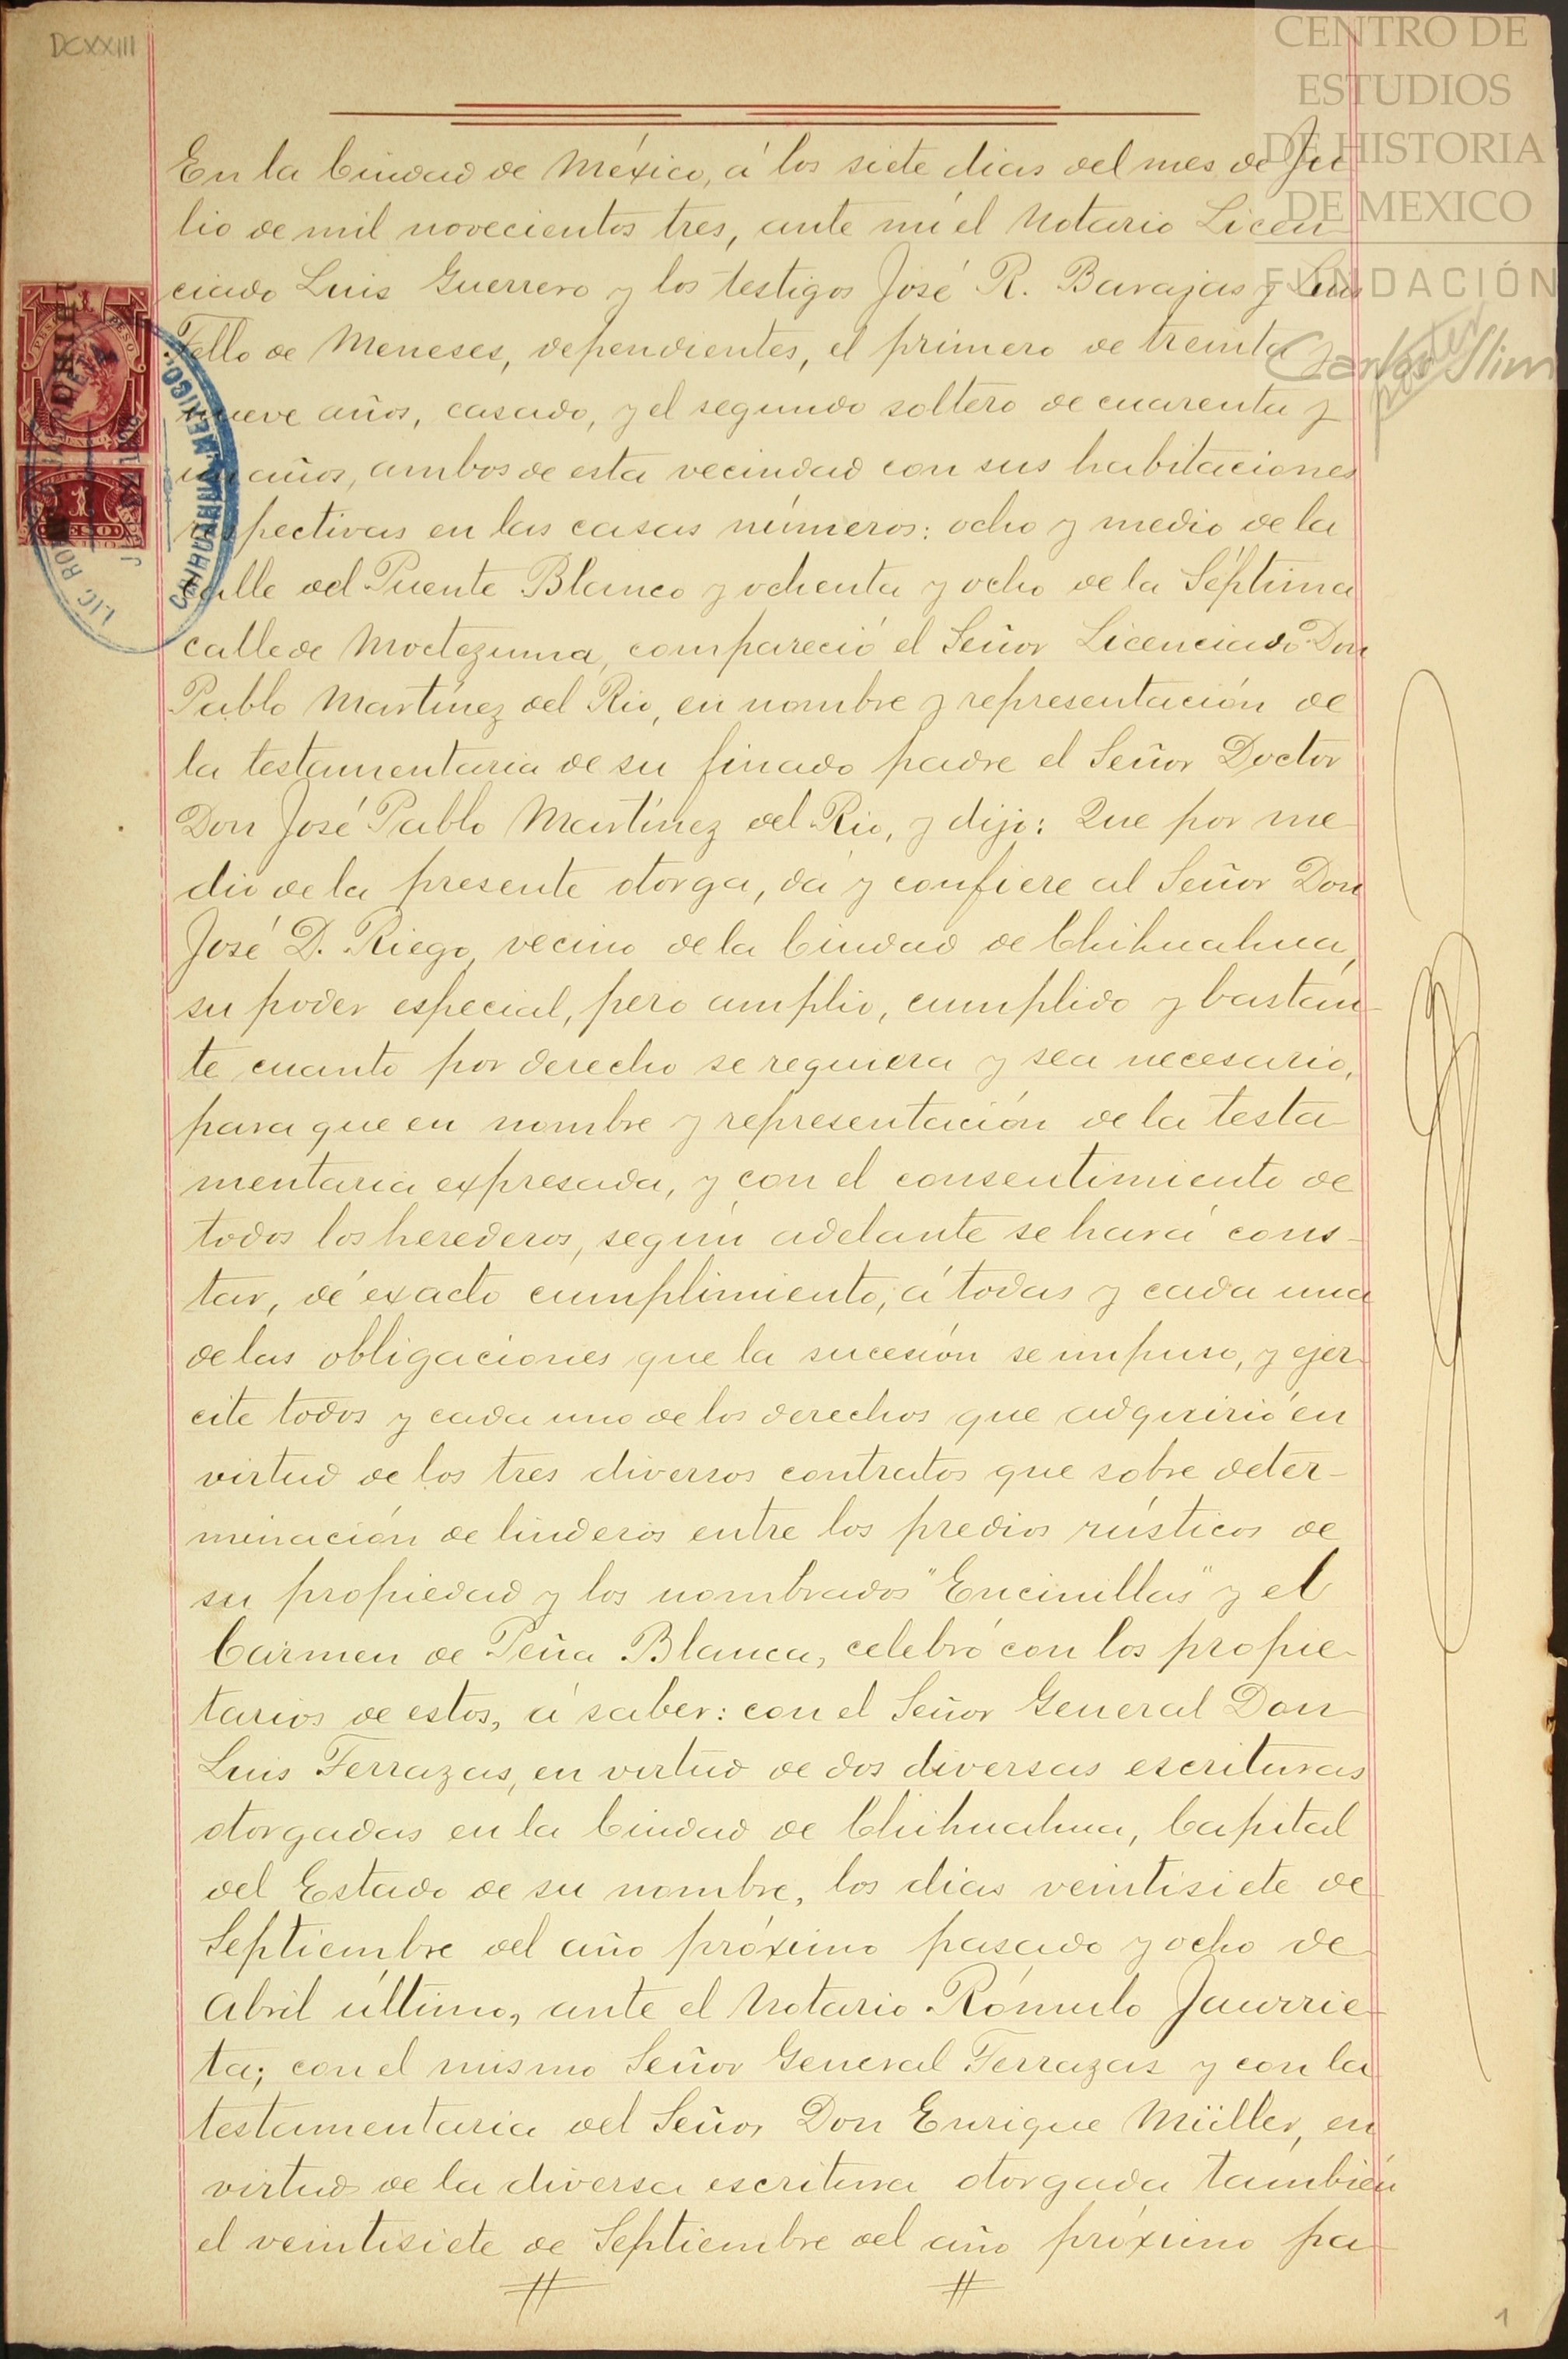 DCXXIII
CENTRO DE
ESTUDIOS
DE HISTORIA
DE MEXICO
FUNDACIÓN
Carlos Slim
En la Ciudad de México, á los siete dias del mes de Ju
lio de mil novecientos tres, ante mí el Notario Licen
ciado Luis Guerrero y los testigos José R. Barajas y Luis
Tello de Meneses, dependientes, el primero de treinta y
nueve años, casado, y el segundo soltero de cuarenta y
un años, ambos de esta vecindad con sus habitaciones
respectivas en las casas números: ocho y medio de la
calle del Puente Blanco y ochenta y ocho de la Séptima
calle de Moctezuma, compareció el Señor Licenciado Don
Pablo Martínez del Rio, en nombre y representación de
la testamentaria de su finado padre el Señor Doctor
Don José Pablo Martínez del Rio, y dijo: Que por me
dio de la presente otorga, dá y confiere al Señor Don
José D. Riego, vecino de la Ciudad de Chihuahua,
su poder especial, pero amplio, cumplido y bastan
te cuanto por derecho se requiera y sea necesario,
para que en nombre y representación de la testa
mentaria expresada, y con el consentimiento de
todos los herederos, según adelante se hará cons-
tar, dé exacto cumplimiento, á todas y cada una
de las obligaciones que la sucesión se impuso, y ejer
cite todos y cada uno de los derechos que adquirió en
virtud de los tres diversos contratos que sobre deter-
minación de linderos entre los predios rústicos de
su propiedad y los nombrados "Encinillas" y el
Carmen de Peña Blanca, celebró con los propie-
tarios de estos, á saber: con el Señor General Don
Luis Terrazas, en virtud de dos diversas escrituras
otorgadas en la Ciudad de Chihuahua, Capital
del Estado de su nombre, los dias veintisiete de
Septiembre del año próximo pasado y ocho de
Abril último, ante el Notario Rómulo Jaurrie-
ta; con el mismo Señor General Terrazas y con la
testamentaria del Señor Don Enrique Müller, en
virtud de la diversa escritura otorgada también
el veintisiete de Septiembre del año próximo pa
PESO
CHIHUAHUA, MEXICO.
LIC.
1